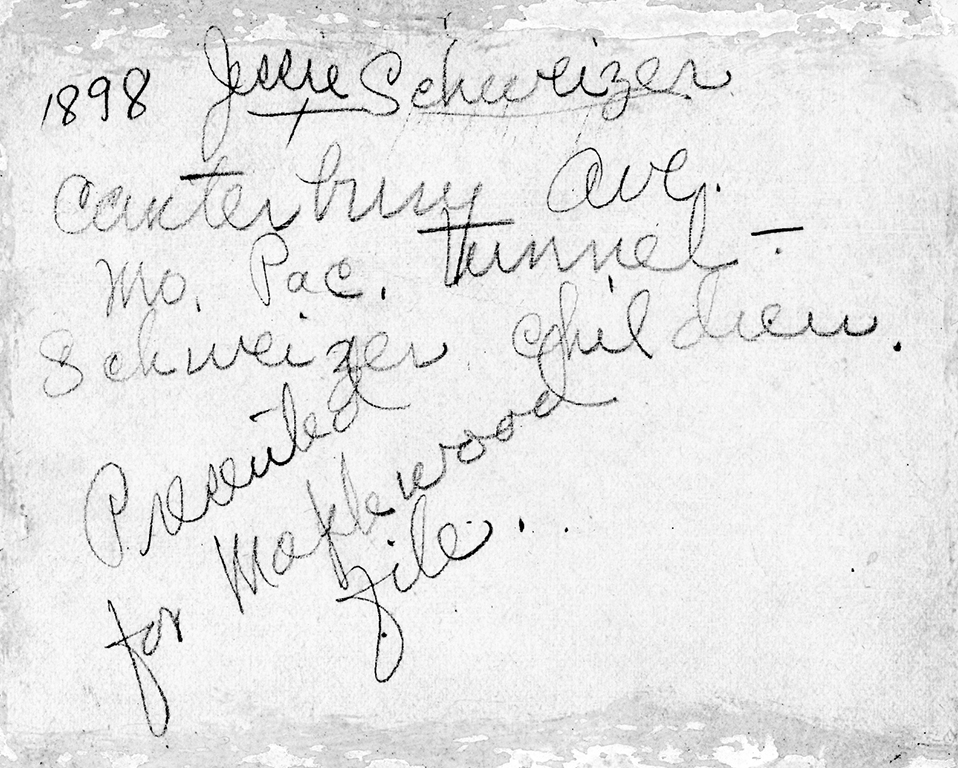 1898 Jessie Schweizer
Canterbury Ave.
Mo. Pac. Tunnel -
Schweizer Children.
Presented
for Maplewood
file...